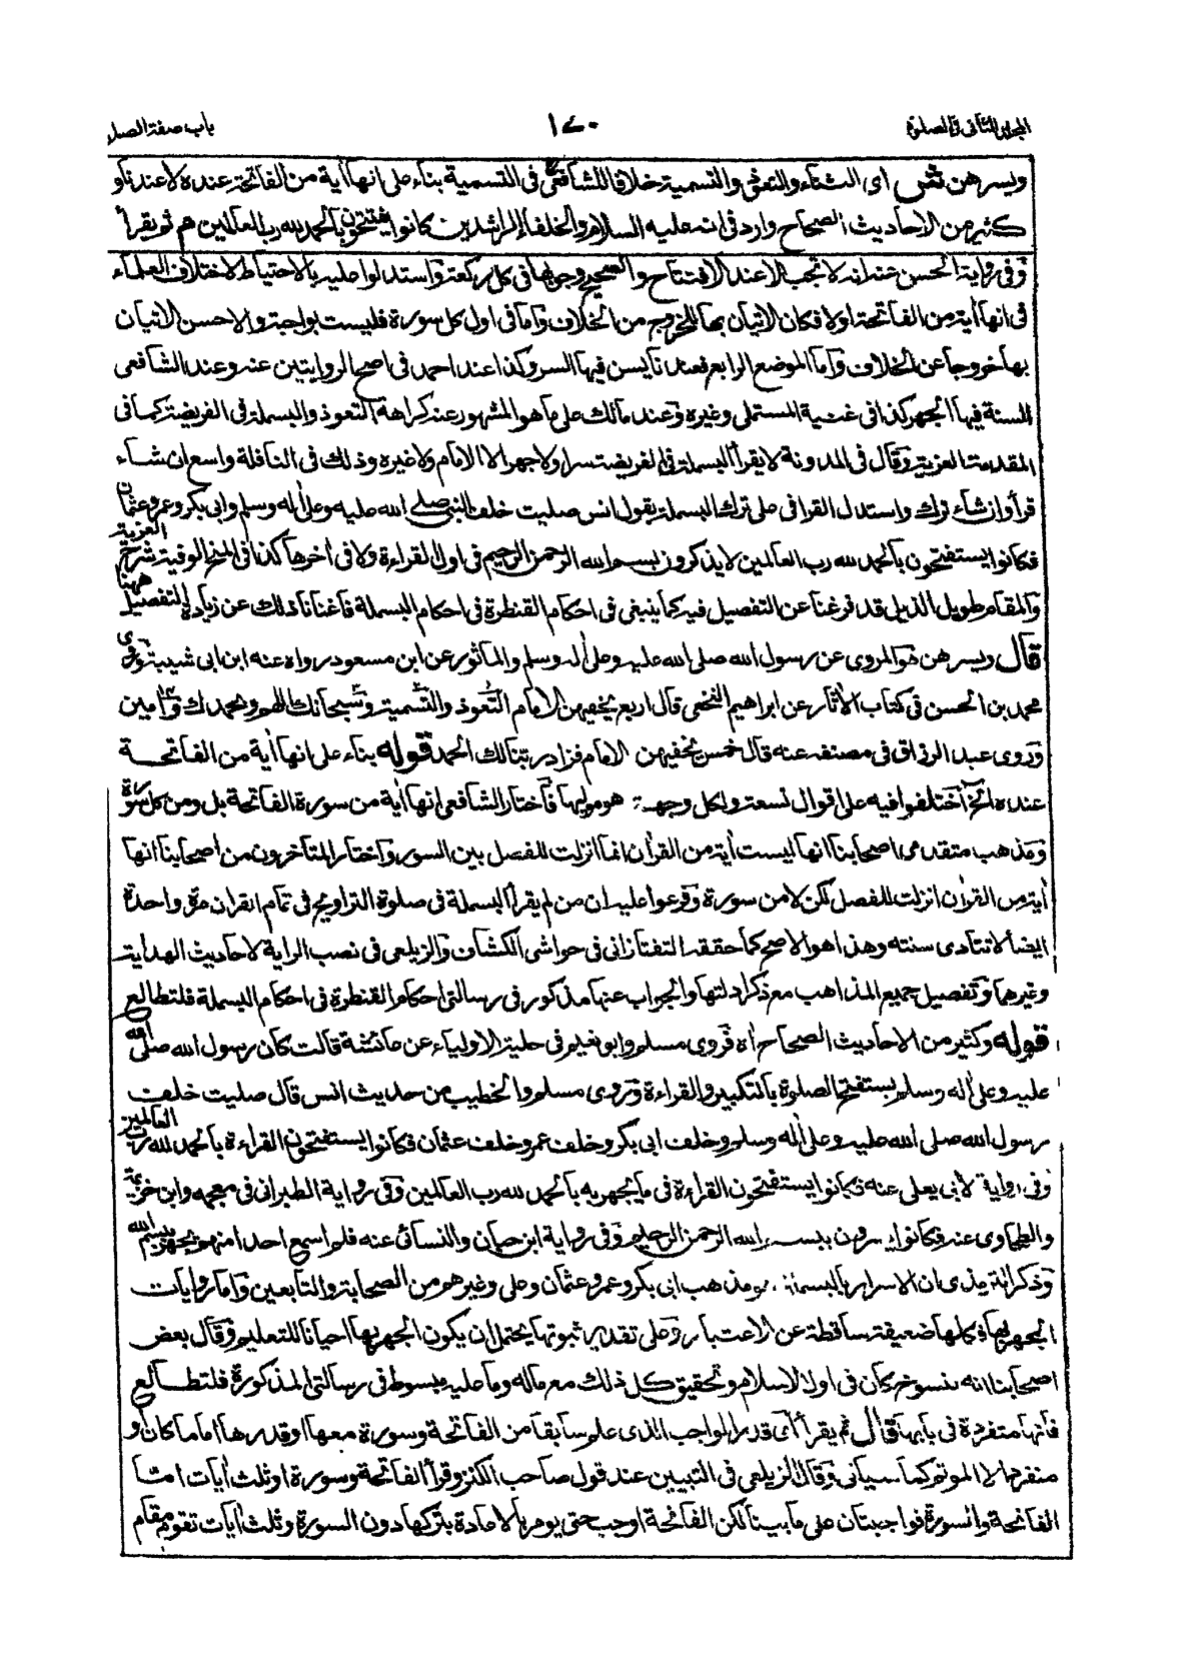 الجزء الثاني في الصلوة ١٤٠ باب صفة الصلو
ويسرهن ش اى الثناء والتعوذ والتسمية خلافا للشافعى فى التسمية بناء على انها أية من الفاتحة عنده لا عندنا و
كثير من الاحاديث الصحاح وارد فى انه عليه السلام والخلفاء الراشدين كانوا يفتتحون بالحمد لله رب العالمين هم ثم يقرأ
وفى رواية الحسن عنه انه لا تجب الا عند الافتتاح والصحيح وجوبها فى كل ركعة واستدلوا عليه بالاحتياط لاختلاف العلماء
فى انها أية من الفاتحة اولا فكان الاتيان بها للخروج من الخلاف واما فى اول كل سورة فليست بواجبة والاحسن الاتيان
بها خروجا عن الخلاف واما الموضع الرابع فعندنا يسن فيها السر وكذا عند احمد فى اصح الروايتين عنه وعند الشافعى
السنة فيها الجهر كذا فى غنية المستملى وغيره وعند مالك على ما هو المشهور عنه كراهة التعوذ والبسملة فى الفريضة كما فى
المقدمة العزية وقال فى المدونة لا يقرأ البسملة فى الفريضة سرا ولا جهرا لا الامام ولا غيره وذلك فى النافلة واسع ان شاء
قرأ وان شاء ترك واستدل القرافى على ترك البسملة بقول انس صليت خلف النبى صلى الله عليه وعلى أله وسلم وابى بكر وعمر وعثمان
فكانوا يستفتحون بالحمد لله رب العالمين لا يذكرون بسم الله الرحمن الرحيم فى اول القراءة ولا فى أخرها كذا فى المنح الوفية شرح العزية
والمقام طويل الذيل قد فرغنا عن التفصيل فيه كما ينبغى فى احكام القنطرة فى احكام البسملة فاغنانا ذلك عن زيادة التفصيل ههنا
قال ويسرهن هو المروى عن رسول الله صلى الله عليه وعلى أله وسلم والمأثور عن ابن مسعود رواه عنه ابن ابى شيبة وروى
محمد بن الحسن فى كتاب الأثار عن ابراهيم النخعى قال اربع يخفيهن الامام التعوذ والتسمية وسبحانك اللهم وبحمدك وأمين
وروى عبد الرزاق فى مصنفه عنه قال خمس يخفيهن الامام فزاد ربنا لك الحمد قوله بناء على انها أية من الفاتحة
عنده الخ اختلفوا فيه على اقوال تسعة ولكل وجهة هو موليها فاختار الشافعى انها أية من سورة الفاتحة بل ومن كل سورة
ومذهب متقدمى اصحابنا انها ليست أية من القرأن انما انزلت للفصل بين السور واختار المتأخرون من اصحابنا انها
أية من القرأن انزلت للفصل لكن لا من سورة وفرعوا عليه ان من لم يقرأ البسملة فى صلوة التراويح فى تمام القران مرة واحدة
ايضا لا تتادى سنته وهذا هو الاصح كما حققه التفتازانى فى حواشى الكشاف والزيلعى فى نصب الراية لاحاديث الهداية
وغيرهما وتفصيل جميع المذاهب مع ذكر ادلتها والجواب عنها مذكور فى رسالتى احكام القنطرة فى احكام البسملة فلتطالع
قوله وكثير من الاحاديث الصحاح أه فروى مسلم وابو نعيم فى حلية الاولياء عن عائشة قالت كان رسول الله صلى الله
عليه وعلى أله وسلم يستفتح الصلوة بالتكبير والقراءة وروى مسلم والخطيب من حديث انس قال صليت خلف
رسول الله صلى الله عليه وعلى أله وسلم وخلف ابى بكر وخلف عمر وخلف عثمان فكانوا يستفتحون القراءة بالحمد لله رب العالمين
وفى رواية لابى يعلى عنه فكانوا يستفتحون القراءة فى ما يجهر به بالحمد لله رب العالمين وفى رواية الطبرانى فى معجمه وابن خزيمة
والطحاوى عنه فكانوا يسرون ببسم الله الرحمن الرحيم وفى رواية ابن حبان والنسائى عنه فلم اسمع احدا منهم يجهر ببسم الله
وذكر الترمذى ان الاسرار بالبسملة هو مذهب ابى بكر وعمر وعثمان وعلى وغيرهم من الصحابة والتابعين واما روايات
الجهر بها فكلها ضعيفة ساقطة عن الاعتبار وعلى تقدير ثبوتها يحتمل ان يكون الجهر بها احيانا للتعليم وقال بعض
اصحابنا انه منسوخ كان فى اول الاسلام وتحقيق كل ذلك مع ماله وما عليه مبسوط فى رسالتى المذكورة فلتطالع
فانها متفردة فى بابها قال ثم يقرأ أى قدر الواجب الذى علم سابقا من الفاتحة وسورة معها او قدرها اماما كان او
منفردا لا الموتم كما سيأتى وقال الزيلعى فى التبيين عند قول صاحب الكنز وقرأ الفاتحة وسورة او ثلث أيات اما
الفاتحة والسورة فواجبتان على ما بينا لكن الفاتحة اوجب حتى يومر بالاعادة بتركها دون السورة وثلث أيات تقوم مقام